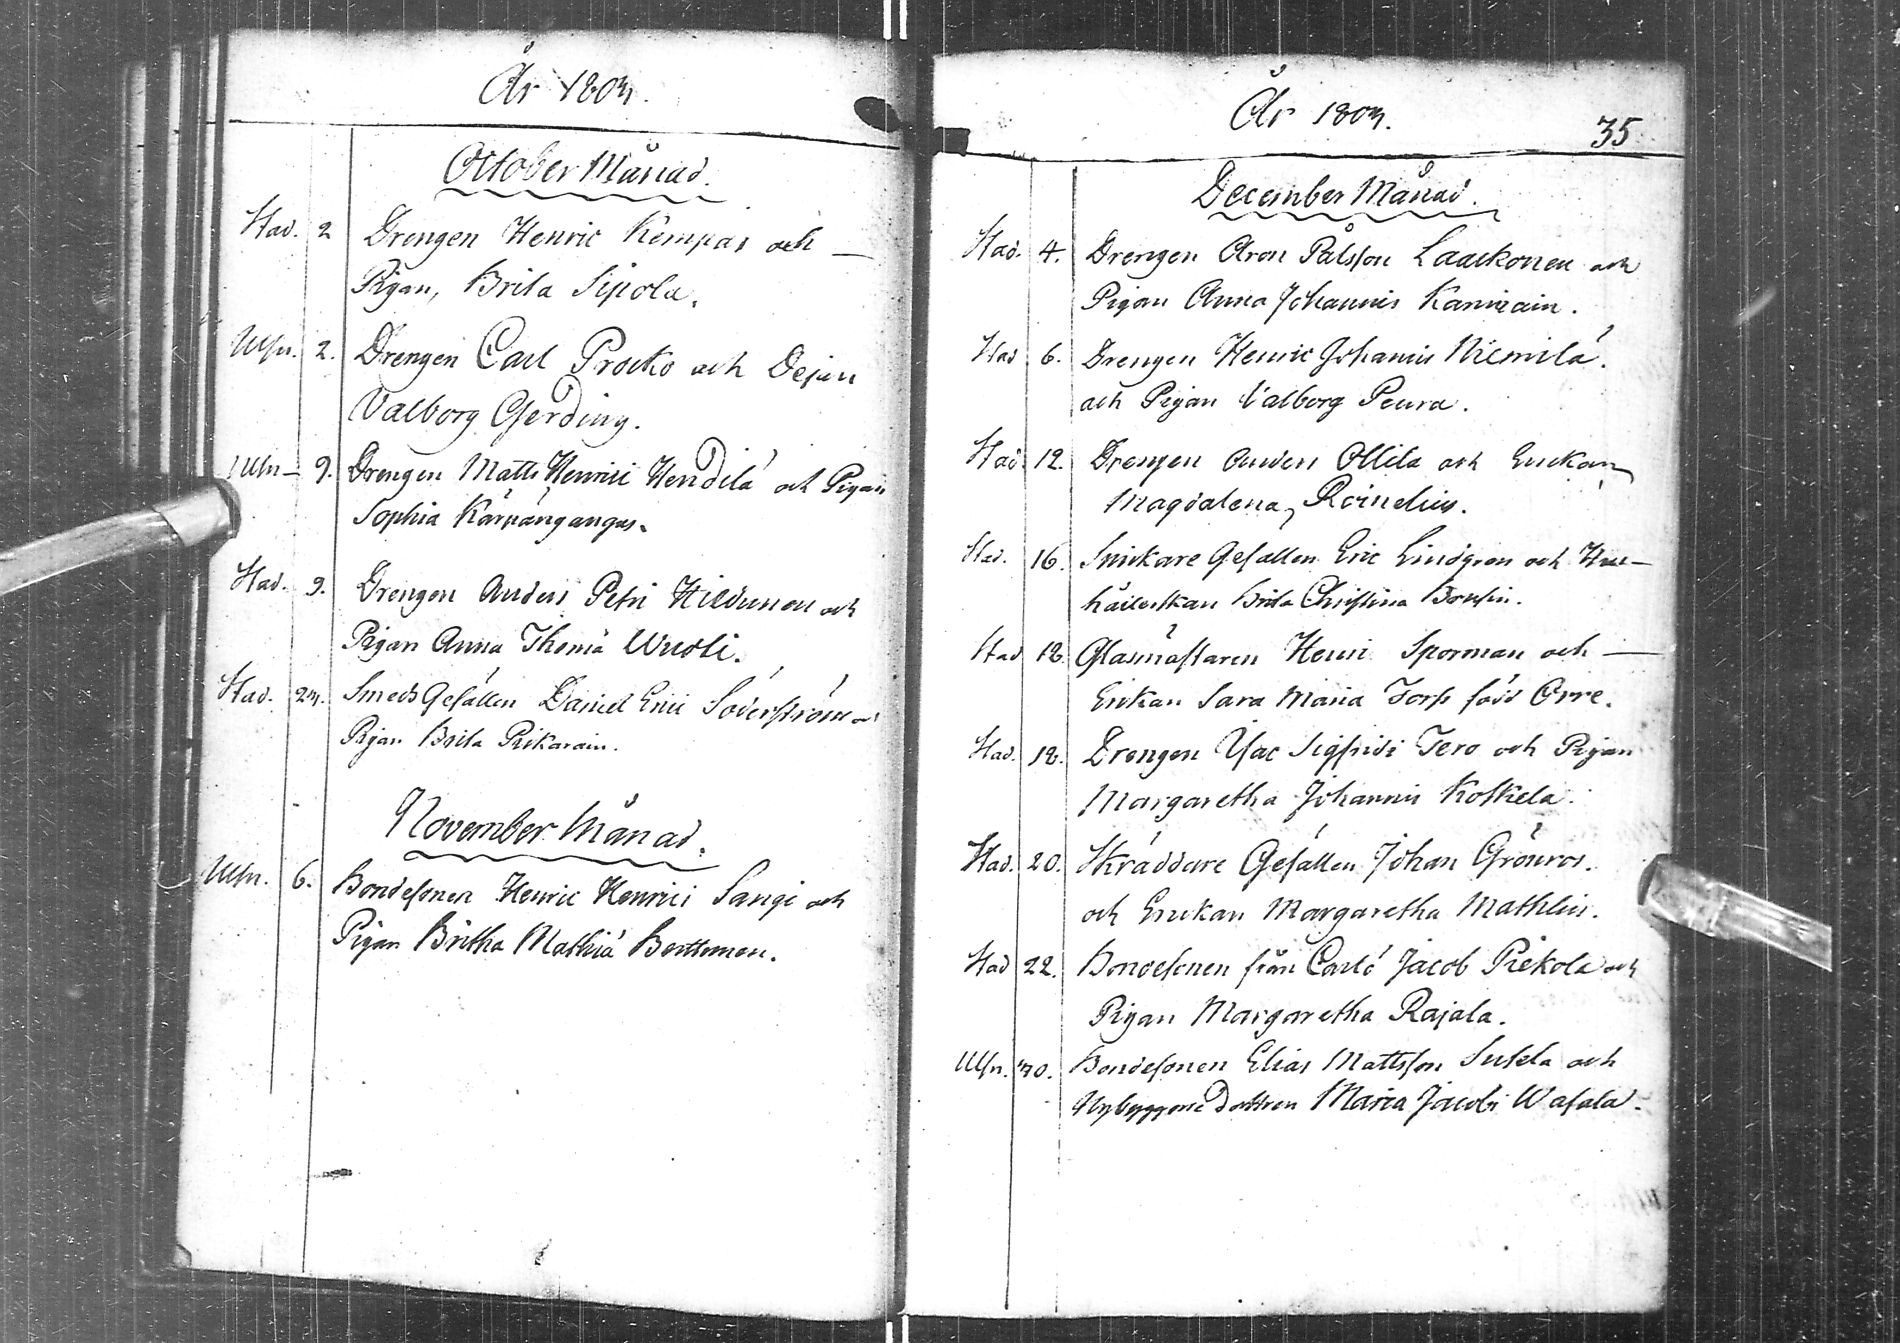 År 1803.
October Månad.
Stad. 2 Drengen Henric Kempas och —
Pigan, Brita Sipola.
Ulfn. 2. Drengen Carl Procko och Dejan
Valborg Gerding.
Ulfn — 9. Drengen Matts Henrici Hendilä och Pigan
Sophia Kärnängangas.
Stad. 9. Drengen Anders Petri Hildunen och
Pigan Anna Thomæ Wuoti.
Stad. 23. Smeds Gesällen Daniel Erici Söderström o
Pigan Brita Pikarain.
November Månad.
Ulfn. 6. Bondesonen Henric Henrici Sangi och
Pigan Britha Mathiæ Berttunen.
År 1803.
35
December Månad.
Stad. 4. Drengen Aron Pålsson Laackonen och
Pigan Anna Johannis Kanniain.
Stad 6. Drengen Henric Johannis Niemilä.
och Pigan Valborg Peura.
Stad 12. Drengen Anders Ollila och Enckan
Magdalena Roinelius.
Stad. 16. Snickare Gesällen Eric Lindgren och Hus—
hållerskan Brita Christina Bonsin.
Stad 18. Glasmästaren Henric Sporman och —
Enkan Sara Maria Torp född Orre.
Stad. 18. Drengen Isac Sigfridi Tero och Pigan
Margaretha Johannis Koskela.
Stad. 20. Skräddare Gesällen Johan Grönros.
och Enckan Margaretha Mathlin.
Stad 22. Bondesonen från Carlö Jacob Piekola och
Pigan Margaretha Rajala.
Ulfn. 30. Bondesonen Elias Mattsson Susela och
Nybyggare Dottren Maria Jacobi Wasala.